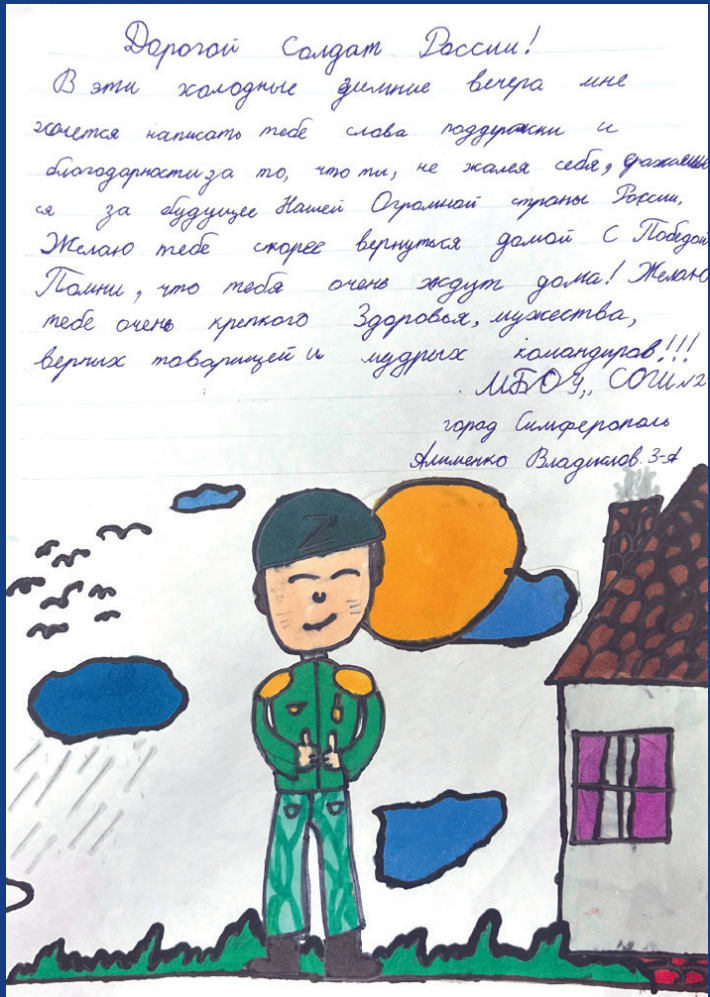 Дорогой Солдат России!
В эти холодные зимние вечера мне
хочется написать тебе слова поддержки и
благодарности за то, что ты, не жалея себя, сражаеш
ся за будущее Нашей Огромной страны России.
Желаю тебе скорее вернуться домой С Победой
Помни, что тебя очень ждут дома! Желаю
тебе очень крепкого Здоровья, мужества,
верных товарищей и мудрых командиров!!!
МБОУ,, СОШ №2
город Симферополь
Алименко Владислов. 3-А
Z